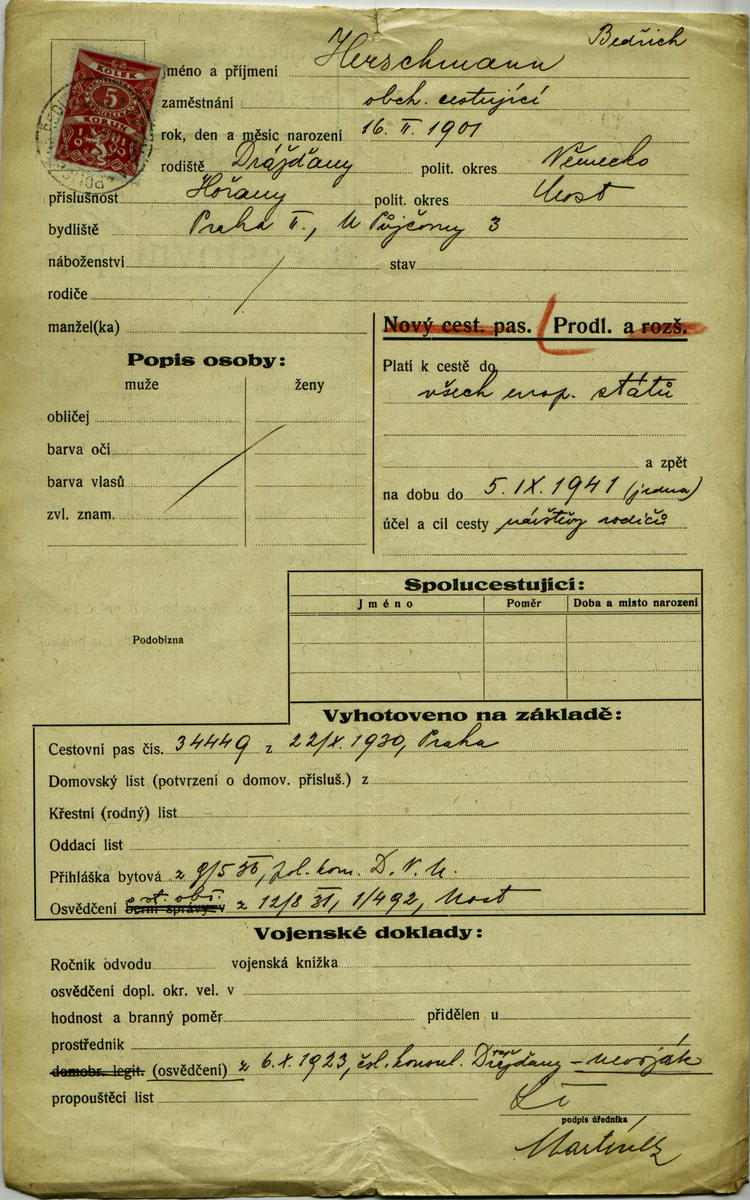 Bedřich
jméno a příjmení Herschmann
zaměstnání obch. cestující
rok, den a měsíc narození 16. II. 1901
rodiště Drážďany polit. okres Německo
příslušnost Hořany polit. okres Most
bydliště Praha II., U Půjčovny 3
náboženství stav
rodiče
manžel(ka)
KOLEK
5
KORUN
Nový cest. pas. Prodl. a rozš.
Popis osoby:
muže ženy
obličej
barva očí
barva vlasů
zvl. znam.
Platí k cestě do
všech evrop. států
a zpět
na dobu do 5. IX. 1941 (jedna)
účel a cíl cesty návštěv rodičů
Podobizna
Spolucestující:
Jméno Poměr Doba a místo narození
Vyhotoveno na základě:
Cestovní pas čís. 34449 z 22/X. 1930, Praha
Domovský list (potvrzení o domov. přísluš.) z
Křestní (rodný) list
Oddací list
Přihláška bytová z 9/5 36, pol. kom. D. V. U.
Osvědčení berní správy v st. obč. z 12/8 31, 1/492, Most
Vojenské doklady:
Ročník odvodu vojenská knížka
osvědčení dopl. okr. vel. v
hodnost a branný poměr přidělen u
prostředník
domobr. legit. (osvědčení) z 6. X. 1923, čsl. konsul. Drážďany – nevoják
propouštěcí list
podpis úředníka